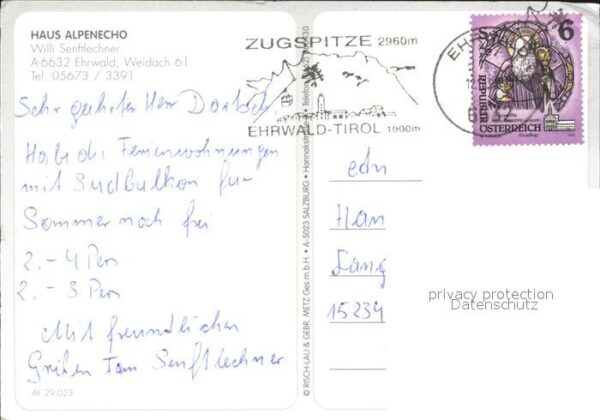 HAUS ALPENECHO
Willi Senftlechner
A-6632 Ehrwald, Weidach 61
Tel. 05673 / 3391
Sehr geehrter Herr
Habe die Ferienwohnungen
mit Südbalkon für
Sommer noch frei
2. - 4 Pers
2. - 3 Pers
Mit freundlichen
Grüßen Fam Senftlechner
AF. 29.023
© RISCH-LAU & GEBR. METZ Ges.m.b.H. • A-5023 SALZBURG •
ZUGSPITZE 2960m
EHRWALD-TIROL 1000m
S 6
REPUBLIK
ÖSTERREICH
15234
privacy protection
Datenschutz